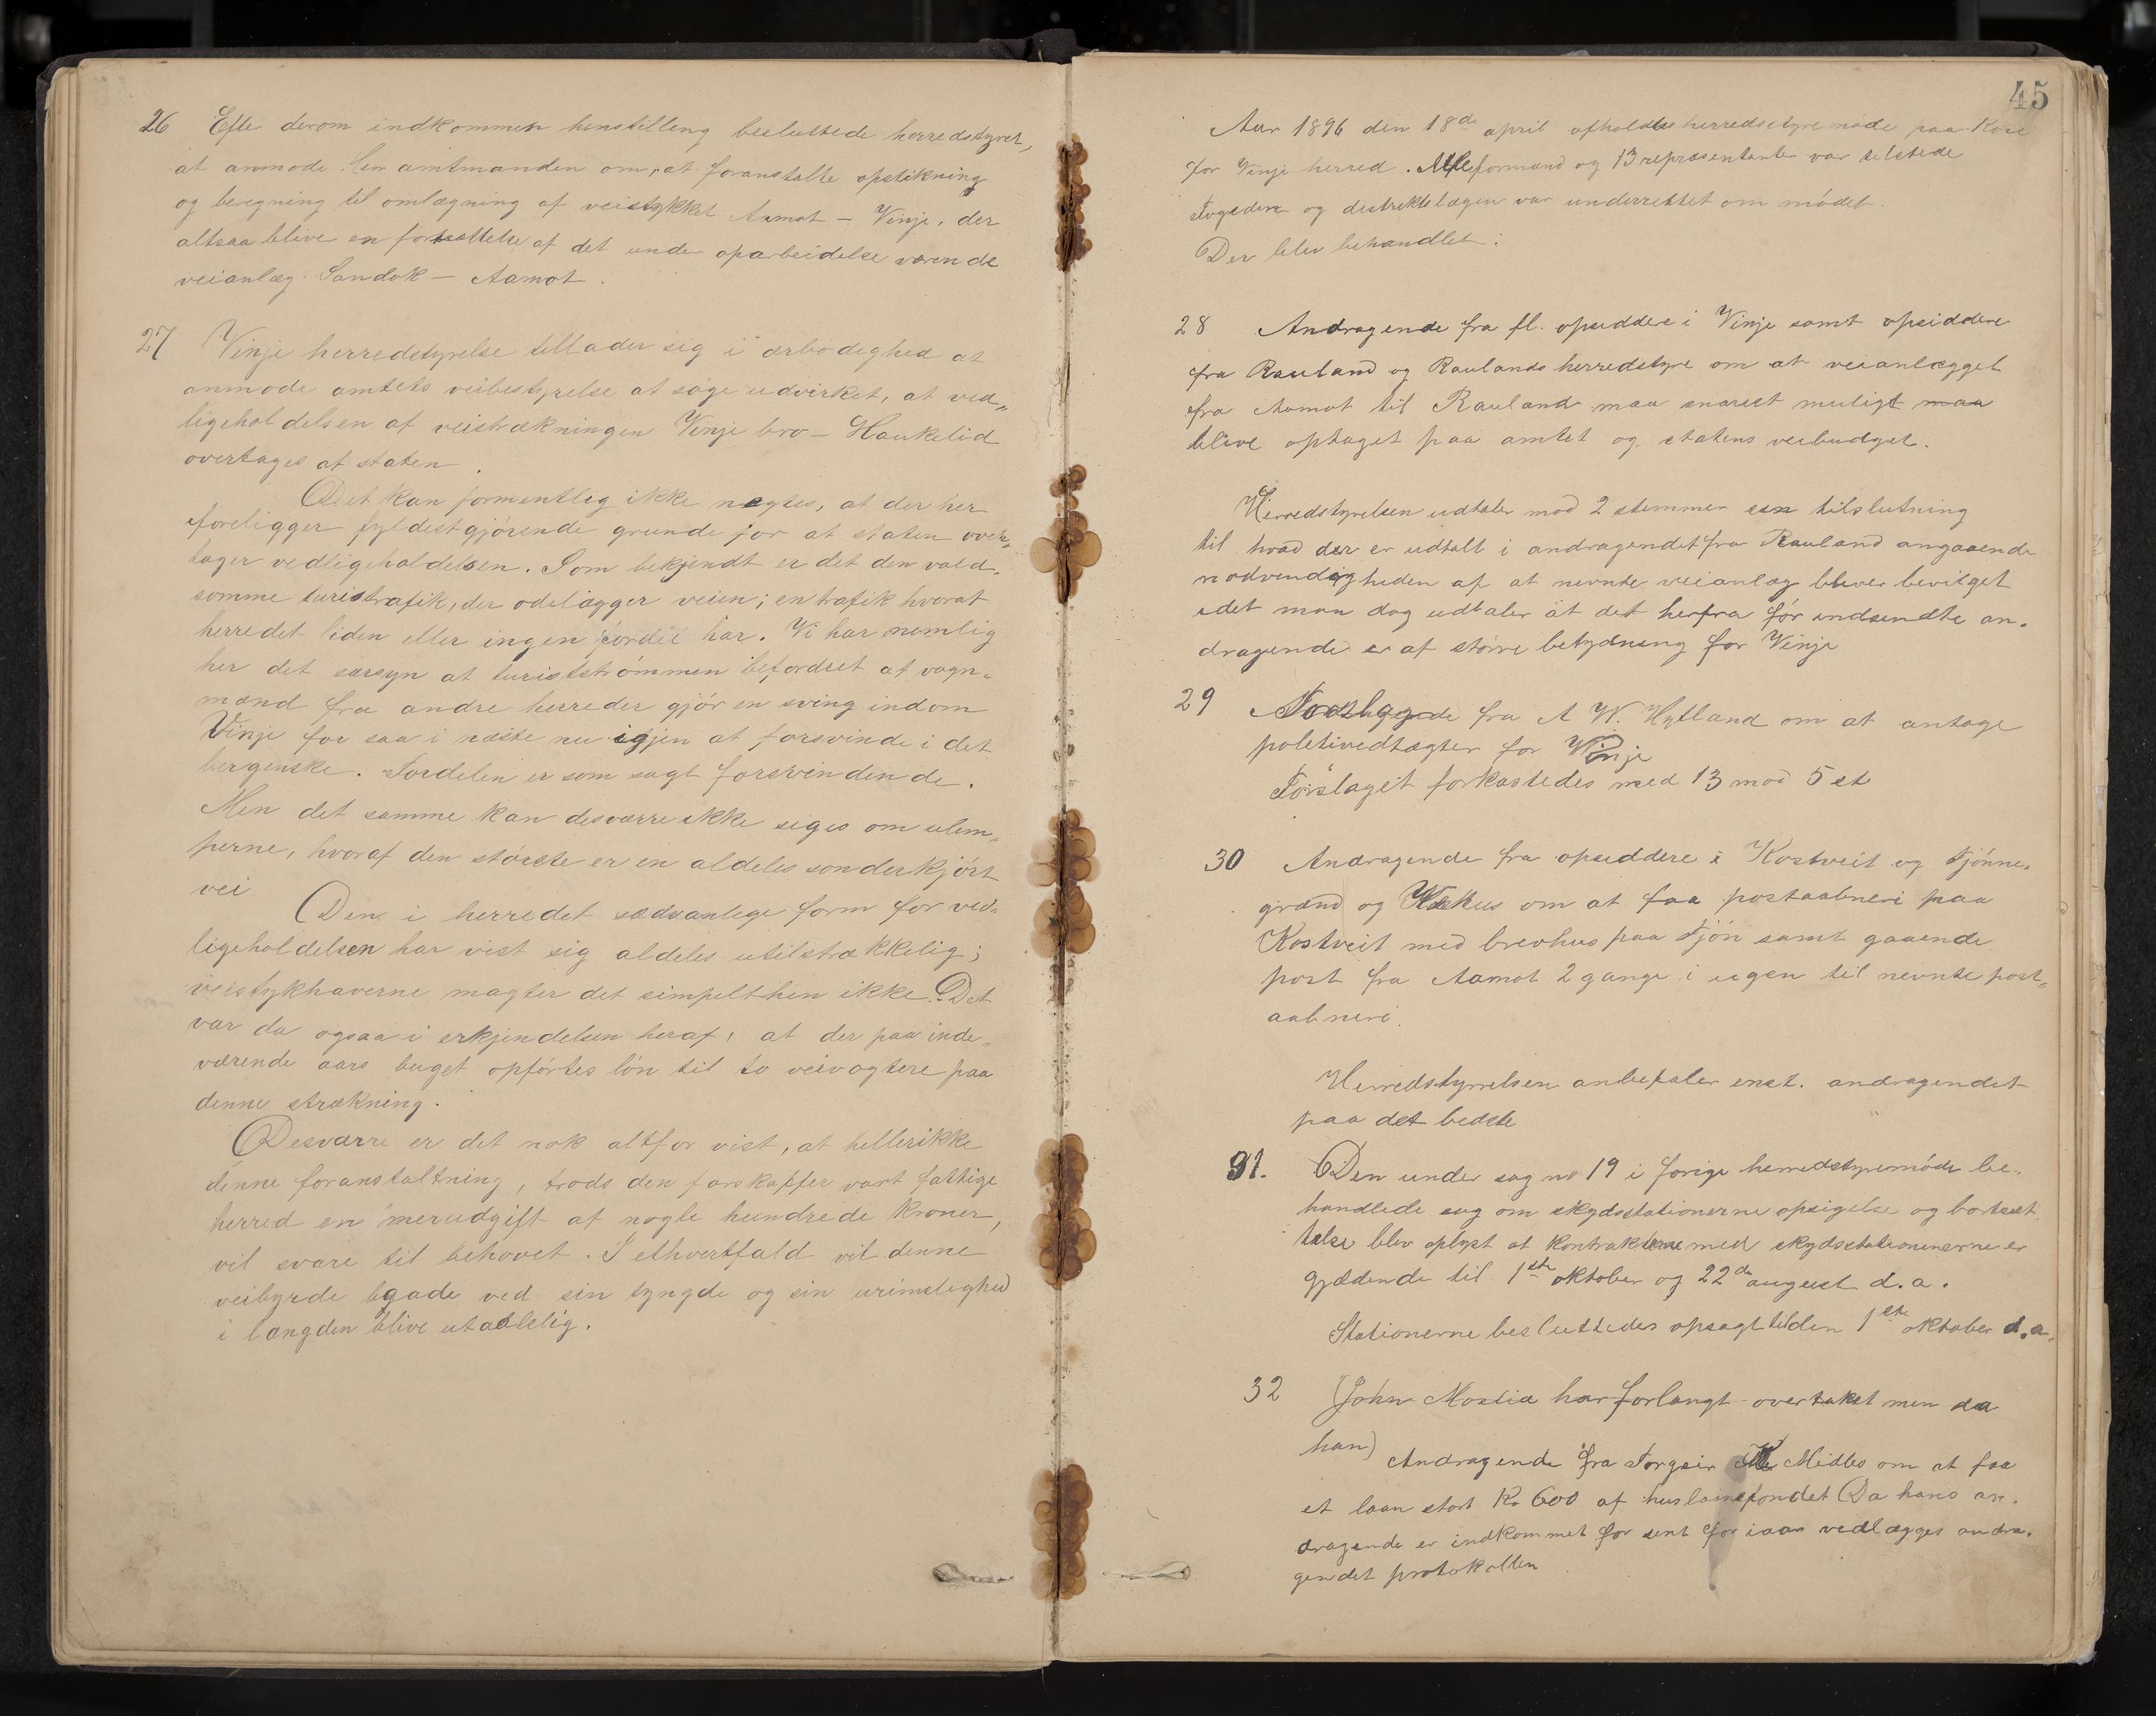 26 Efter derom indkommen henstilling besluttede herredstyret,
at anmode herr amtmanden om, at foranstalte opstikning
og beregning til omlægning af veistykket Aamot – Vinje, der
altsaa blive en fortsættelse af det under oparbeidelse værende
veianlæg Sandok – Aamot.
27 Vinje herredstyrelse tillader sig i ærbødighed at
anmode amtets veibestyrelse at søge udvirket, at ved-
ligeholdelsen af veistrækningen Vinje bro – Haukelid
overtages af staten.
Det kan formentlig ikke nægtes, at der her
foreligger fyldestgjørende grunde for at staten over-
tager vedligeholdelsen. Som bekjendt er det den vold-
somme turisttrafik, der ødelægger veien; en trafik hvoraf
herredet liden eller ingen fordel har. Vi har nemlig
her det særsyn at turiststrømmen befordret af vogn-
mænd fra andre herreder gjør en sving indom
Vinje for saa i næste nu igjen at forsvinde i det
bergenske. Fordelen er som sagt forsvindende.
Men det samme kan desværre ikke siges om ulem-
perne, hvoraf den største er en aldeles sønderkjørt
vei
Den i herredet sædvanlige form for ved-
ligeholdelsen har vist sig aldeles utilstrækkelig;
veistykhaverne magter det simpelthen ikke. Det
var da ogsaa i erkjendelsen heraf, at der paa inde-
værende aars buget opførtes løn til to veivogtere paa
denne strækning.
Desværre er det nok altfor vist, at heller ikke
denne foranstaltning, trods den forskaffer vort fattige
herred en merudgift af nogle hundrede kroner,
vil svare til behovet. I ethvertfald vil denne
veibyrde baade ved sin tyngde og sin urimelighed
i længden blive utaalelig.
45
Aar 1896 den 18de april afholdtes herredstyremøde paa
for Vinje herred. Alle formænd og 13 repræsentanter var tilstede
Fogden og distriktslægen var underrettet om mødet.
Der blev behandlet:
28 Andragende fra fl. opsiddere i Vinje samt opsiddere
fra Rauland og Raulands herredstyre om at veianlægget
fra Aamot til Rauland maa snarest muligt maa
blive optaget paa amtet og statens veibudget.
Herredstyrelsen udtaler mod 2 stemmer sin tilslutning
til hvad der er udtalt i andragendet fra Rauland angaaende
nødvendigheden af at nevnte veianlæg bliver bevilget
idet man dog udtaler at det herfra før indsendte an-
dragende er af større betydning for Vinje
29 fra A W. Hylland om at antage
politivedtægter for Vinje
Forslaget forkastedes med 13 mod 5 st
30 Andragende fra opsiddere i Kostveit og Tjønne-
grænd og om at faa postaabneri paa
Kostveit med brevhus paa Tjøn samt gaaende
post fra Aamot 2 gange i ugen til nevnte post-
aabneri.
Herredstyrrelsen anbefaler enst. andragendet
paa det bedste
31. Den under sag no 19 i forige herredstyremøde be-
handlede sag om skydsstationerne opsigelse og bortsæt-
telse blev oplyst at kontrakterne med skydsstationenerne er
gjældende til 1ste oktober og 22de august d.a.
Stationerne besluttedes opsagt til den 1ste oktober d.a.
32 (John Moslid har forlangt overtakst men da
han)
Andragende fra Torgeir Midbø om at faa
et laan stort Kr 600 af huslaansfondet Da hans an-
dragende er indkommet for sent for iaar vedlægges andra-
gendet protokollen